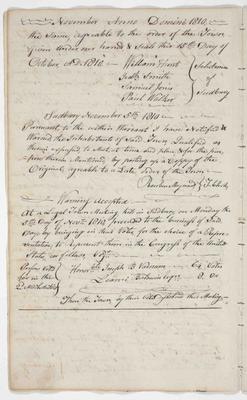 November Anno Domini 1810.
the Same, agreable to the order of the Town
Given under our hands & Seals this 15th Day of
October AD. 1810.
William Hunt
Jedh. Smith
Samuel Jones
Paul Walker
Selectmen
of
Sudbury
Sudbury November 5th 1810
Pursuant to the within Warrant I have Notified &
Warned the Inhabitants of said Town Qualified as
therein expressed to Meet at time and place & for the pur-
pose therein Mentioned, by posting up a Copy of the
Original, agreable to a Late order of the Town
Reuben Maynard
Warning Accepted
At a Legal Town Meeting held in Sudbury on Monday the
5th Day of Novr. 1810 proceeded to the business of the
Day by bringing in their Votes for the choice of a Repre-
sentative to represent them in the Congress of the United
States, as follows
Persons Voted
for in the
District
Honble. Joseph B. Varnum 64 Votes
Then the Town by their Vote